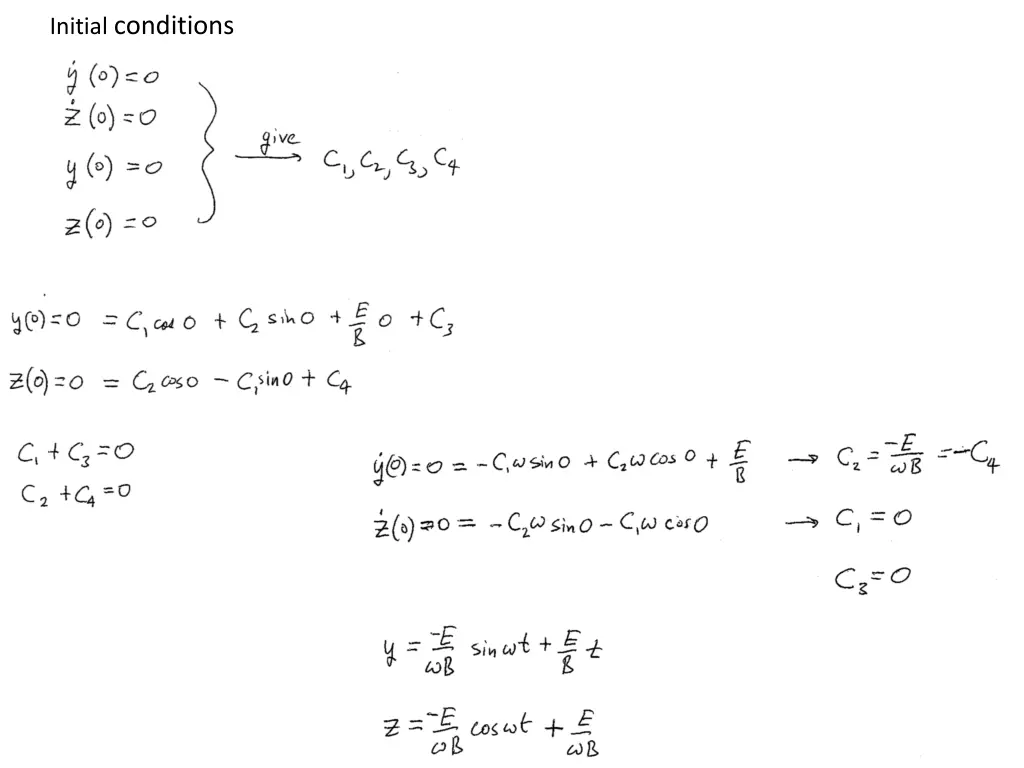 Initial conditions
ẏ(0)=0
ż(0)=0
y(0)=0
z(0)=0
give → C₁, C₂, C₃, C₄
y(0)=0 = C₁ cos 0 + C₂ sin 0 + E/B 0 + C₃
z(0)=0 = C₂ cos 0 − C₁ sin 0 + C₄
C₁ + C₃ = 0
C₂ + C₄ = 0
ẏ(0)=0 = −C₁ω sin 0 + C₂ω cos 0 + E/B → C₂ = −E/ωB = −C₄
ż(0)=0 = −C₂ω sin 0 − C₁ω cos 0 → C₁ = 0
C₃ = 0
y = −E/ωB sin ωt + E/B t
z = −E/ωB cos ωt + E/ωB